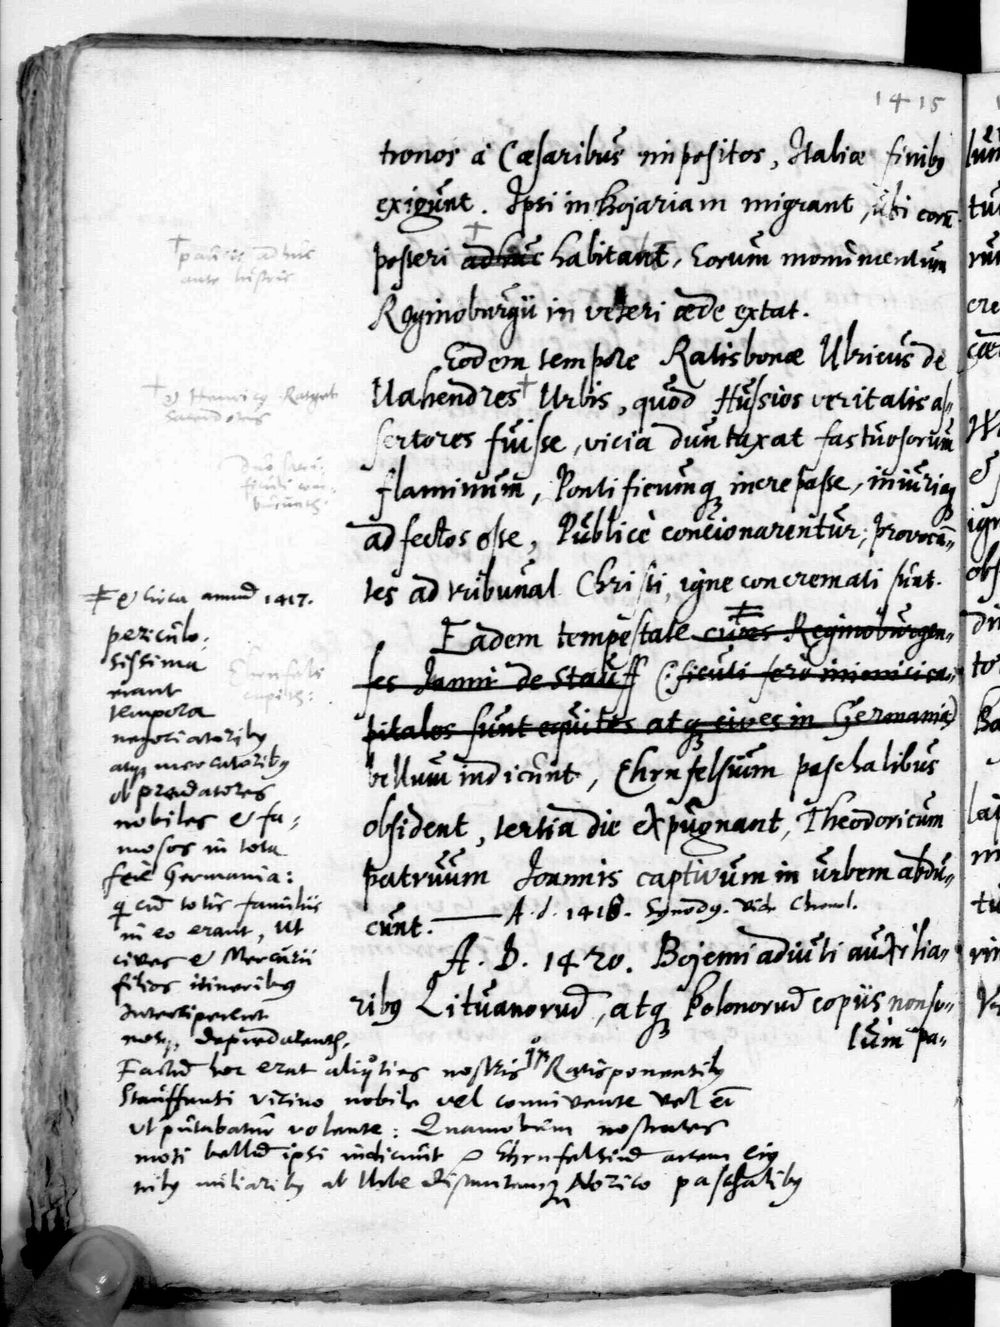 1415
tronos à Cæsaribus impositos, Italiæ finibꝫ
exigunt. Ipsi in Bojariam migrant, ubi eorū
posteri adhuc habitant, Eorum monumentum
Reginoburgii in veteri æde extat.
Eodem tempore Ratisbonæ Ulricus de
Urbis, quod Husios veritatis as„
sertores fuisse, vicia duntaxat fastuosorum
flaminum, Pontificumqꝫ increpasse, iniuriaqꝫ
adfectos esse, Publicè concionarentur, provocā„
tes ad tribunal Christi, igne concremati sunt.
Eadem tempestate cives Reginoburgen„
ses Janni de Stauff (: sicuti fere inimici ca„
pitales sunt equites atqꝫ cives in Germania)
bellum indicunt, Ehrnfelsium paschalibus
obsident, tertia die expugnant, Theodoricum
patruum Joannis captivum in urbem abdu„
cunt. A. d. 1418. Vide Chronol.
A. D. 1420. Bojemi adiuti auxilia„
ribꝫ Lituanorū, atqꝫ Polonorū copiis non so„
lum pa„
adhuc
ante
et circa annum 1417.
periculo„
sissima
erant
tempora
negociatoribꝫ
atqꝫ mercatoribꝫ
ob prædatores
nobiles et fa„
mosos in tota
ferè Germania:
q̃ cū totis familiis
in eo erant, ut
cives et Mercurii
filios itineribꝫ
Factū hoc erat aliquoties nostris in Ratisponensibꝫ
Stauffensi vicino nobile vel connivente vel
ut putabatur volente: Quamobrem nostrates
moti bellū ipsi indicunt Ehrnfelsiū arcem eiꝯ
tribꝫ miliaribꝫ ab Urbe distantem in Norico paschalibꝫ